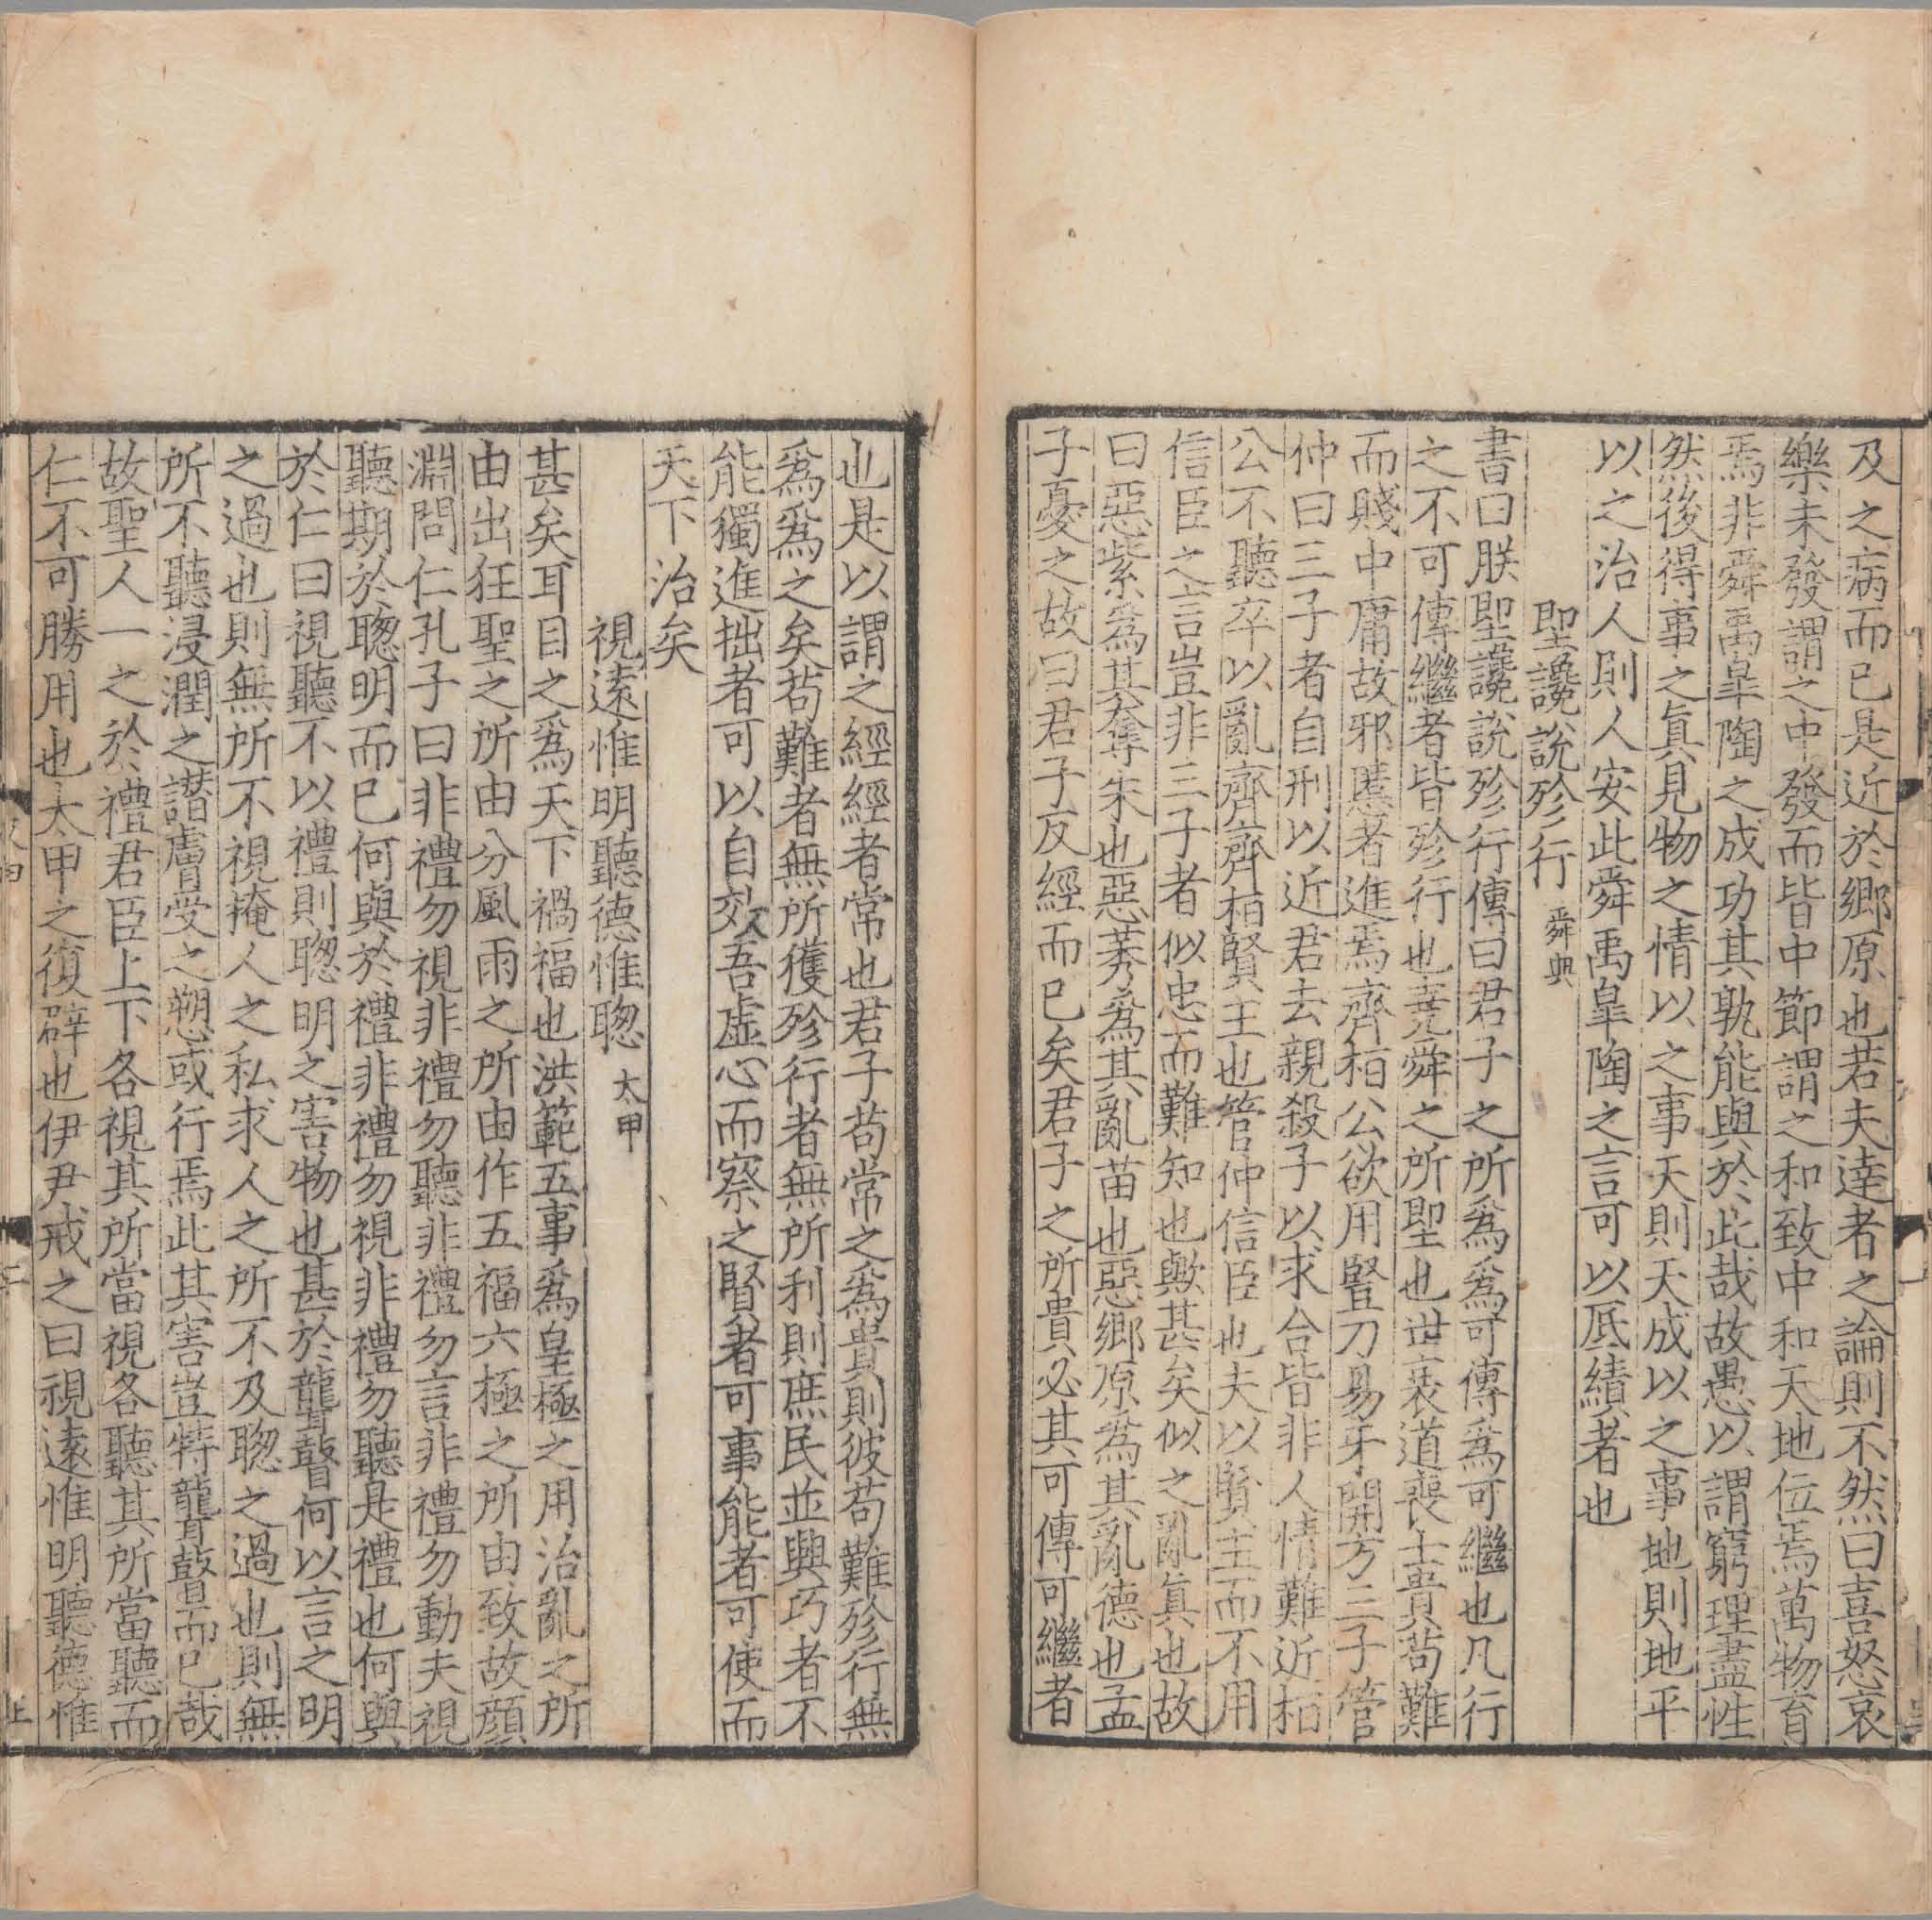 及之病而已是近於鄉原也若夫達者之論則不然曰喜怒哀
樂未發謂之中發而皆中節謂之和致中和天地位焉萬物育
焉非舜禹皐陶之成功其孰能與於此哉故愚以謂窮理盡性
然後得事之眞見物之情以之事天則天成以之事地則地平
以之治人則人安此舜禹皐陶之言可以厎績者也
聖讒說殄行 舜典
書曰朕聖讒說殄行傳曰君子之所爲爲可傳爲可繼也凡行
之不可傳繼者皆殄行也堯舜之所聖也世衰道喪士貴苟難
而賤中庸故邪慝者進焉齊桓公欲用豎刀易牙開方三子管
仲曰三子者自刑以近君去親殺子以求合皆非人情難近桓
公不聽卒以亂齊齊桓賢主也管仲信臣也夫以賢主而不用
信臣之言豈非三子者似忠而難知也歟甚矣似之亂眞也故
曰惡紫爲其奪朱也惡莠爲其亂苗也惡鄉原爲其亂德也孟
子憂之故曰君子反經而已矣君子之所貴必其可傳可繼者
也是以謂之經經者常也君子苟常之爲貴則彼苟難殄行無
爲爲之矣苟難者無所獲殄行者無所利則庶民並興巧者不
能獨進拙者可以自效吾虛心而察之賢者可事能者可使而
天下治矣
視遠惟明聽德惟聦 太甲
甚矣耳目之爲天下禍福也洪範五事爲皇極之用治亂之所
由出狂聖之所由分風雨之所由作五福六極之所由致故顔
淵問仁孔子曰非禮勿視非禮勿聽非禮勿言非禮勿動夫視
聽期於聦明而已何與於禮非禮勿視非禮勿聽是禮也何與
於仁曰視聽不以禮則聦明之害物也甚於聾瞽何以言之明
之過也則無所不視掩人之私求人之所不及聦之過也則無
所不聽浸潤之譖膚受之愬或行焉此其害豈特聾瞽而已哉
故聖人一之於禮君臣上下各視其所當視各聽其所當聽而
仁不可勝用也太甲之復辟也伊尹戒之曰視遠惟明聽德惟